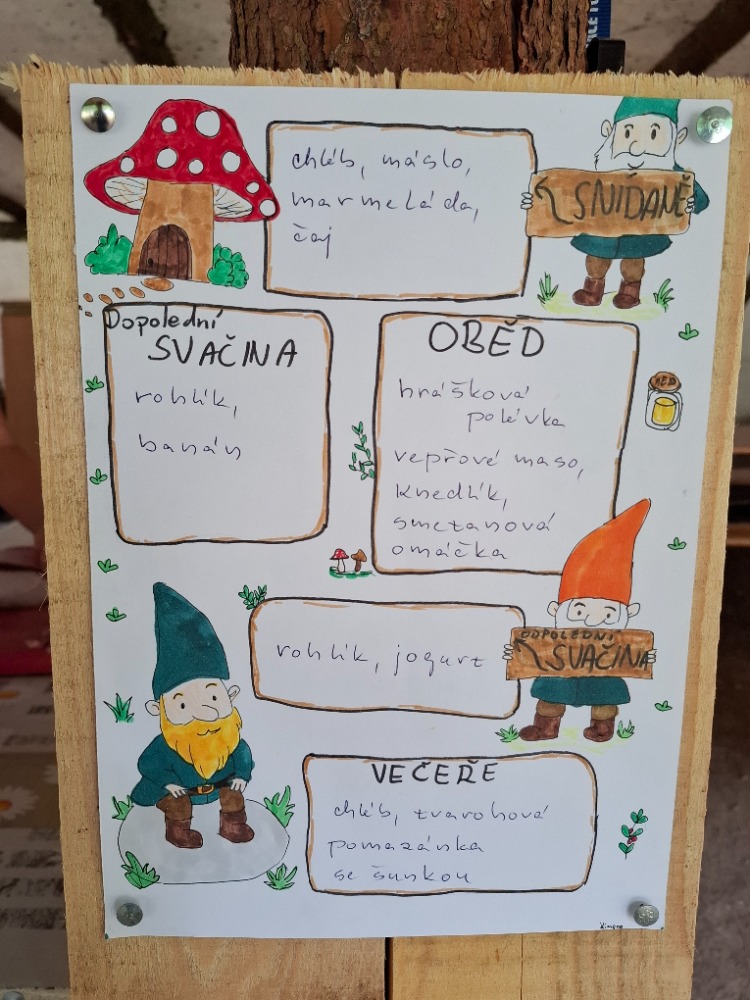 chléb, máslo,
marmeláda,
čaj
SNÍDANĚ
Dopolední
SVAČINA
rohlík,
banán
OBĚD
hrášková
polévka
vepřové maso,
knedlík,
smetanová
omáčka
MED
rohlík, jogurt
ODPOLEDNÍ
SVAČINA
VEČEŘE
chléb, tvarohová
pomazánka
se šunkou